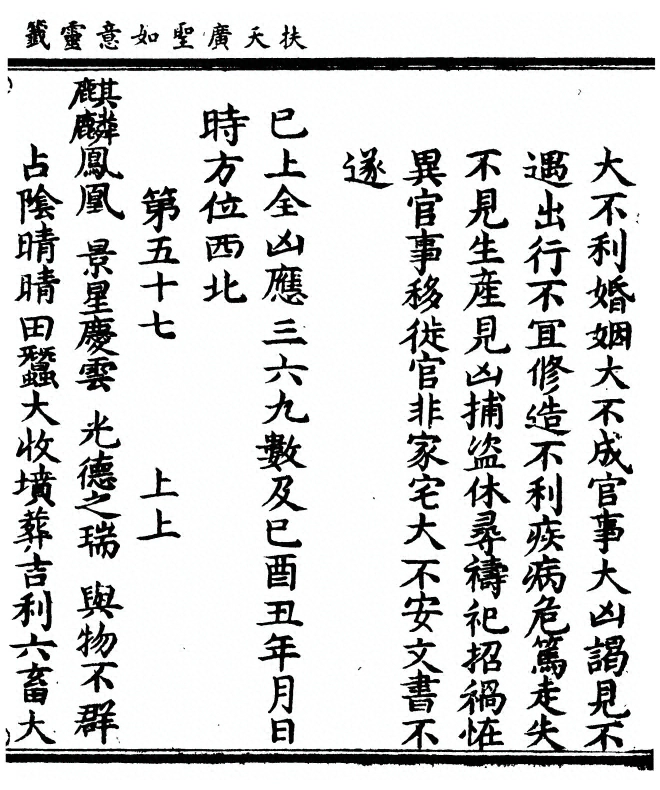 扶天廣聖如意靈籤
大不利婚姻大不成官事大凶謁見不
遇出行不冝修造不利疾病危篤走失
不見生産見凶捕盜休尋禱祀招禍恠
異官事移徙官非家宅大不安文書不
遂
巳上全凶應三六九數及巳酉丑年月日
時方位西北
第五十七 上上
麒麟鳳凰 景星慶雲 光德之瑞 與物不群
占陰晴晴田蠶大收墳葬吉利六畜大